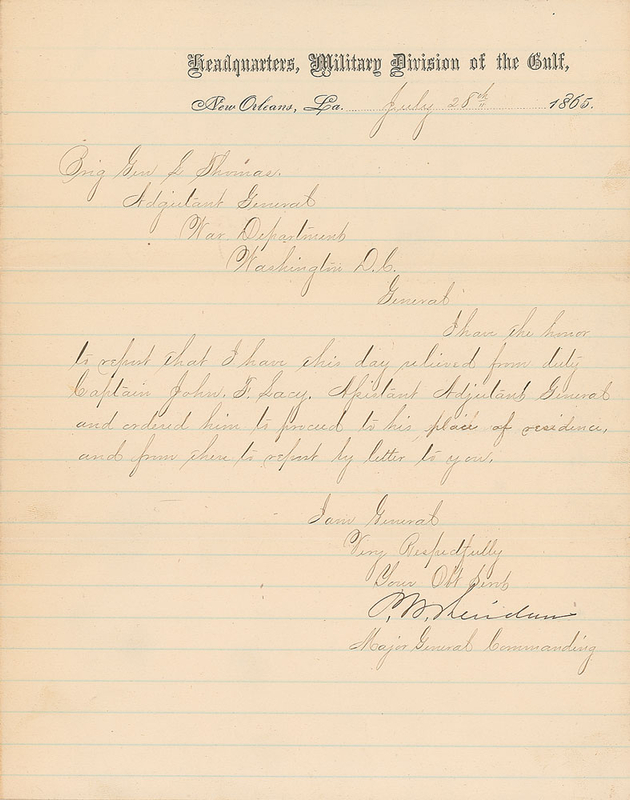 Headquarters, Military Division of the Gulf,
New Orleans, La. July 28th 1865.
Brig Gen L Thomas.
Adjutant General
War Department
Washington D.C.
General
I have the honor
to report that I have this day relieved from duty
Captain John. T. Lacy. Assistant Adjutant General
and ordered him to proceed to his place of residence,
and from there to report by letter to you.
I am General
Very Respectfully
Your Obt Servt
P. H. Sheridan
Major General Commanding